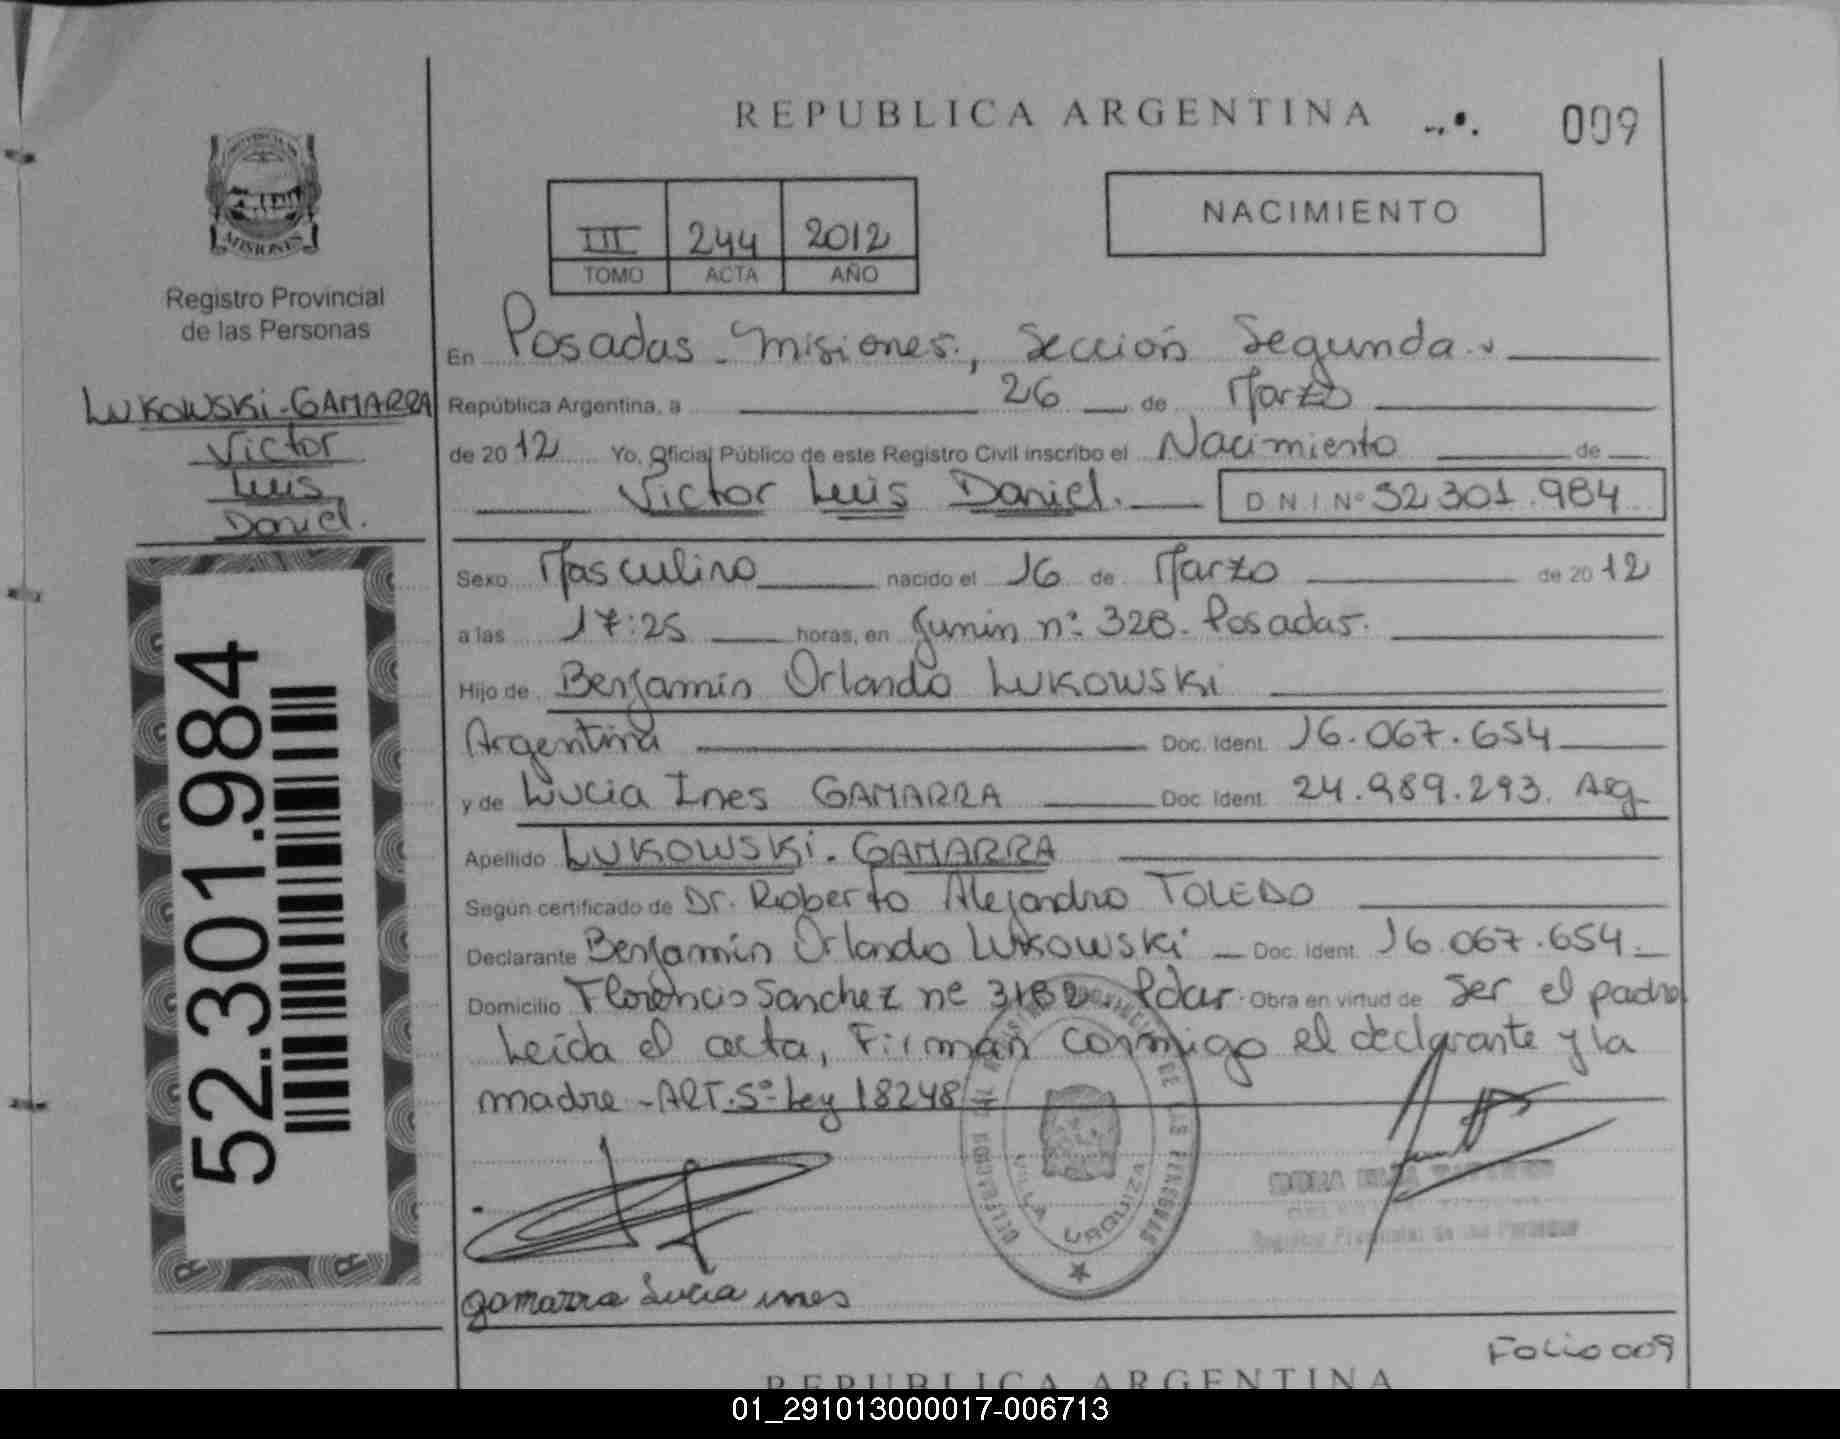 REPUBLICA ARGENTINA
009
PROVINCIA DE
MISIONES
Registro Provincial
de las Personas
III 244 2012
TOMO ACTA AÑO
NACIMIENTO
LUKOWSKI-GAMARRA
Victor
Luis
Daniel.
52.301.984
En Posadas - Misiones, Sección Segunda.
República Argentina, a 26 de Marzo
de 2012 Yo, Oficial Público de este Registro Civil inscribo el Nacimiento de
Victor Luis Daniel. D N I Nº 52 301.984
Sexo Masculino nacido el 16 de Marzo de 2012
a las 17:25 horas, en Junin nº 328. Posadas.
Hijo de Benjamín Orlando LUKOWSKI
Argentina Doc. Ident. 16.067.654
y de Lucia Ines GAMARRA Doc. Ident. 24.989.293. Arg
Apellido LUKOWSKI - GAMARRA
Según certificado de Dr. Roberto Alejandro TOLEDO
Declarante Benjamín Orlando LUKOWSKI Doc. Ident. 16.067.654
Domicilio Florencio Sanchez nº Pdas. Obra en virtud de Ser el padre
Leída el acta, Firman conmigo el declarante y la
madre - ART. 5º Ley 18248
VILLA URQUIZA
Registro Provincial de las Personas
gamarra Lucia ines
Folio 009
REPUBLICA ARGENTINA
01_291013000017-006713